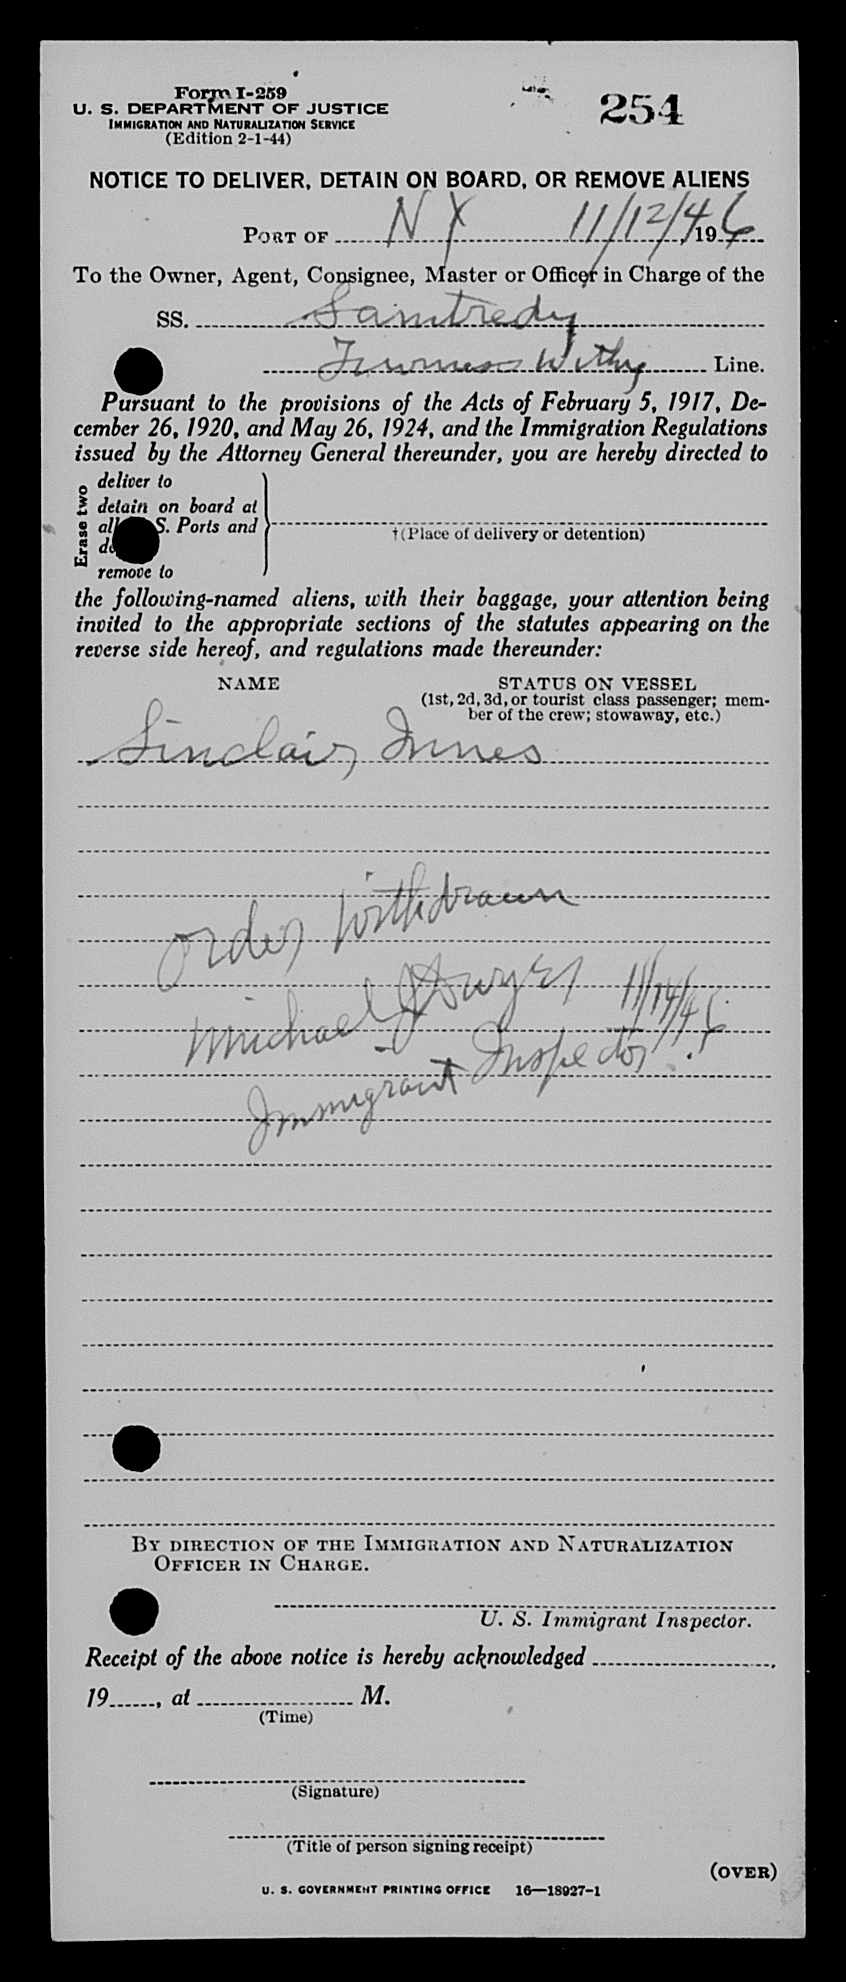 Form I-259
U. S. DEPARTMENT OF JUSTICE
IMMIGRATION AND NATURALIZATION SERVICE
(Edition 2-1-44)
254
NOTICE TO DELIVER, DETAIN ON BOARD, OR REMOVE ALIENS
PORT OF N Y 11/12/46, 19
To the Owner, Agent, Consignee, Master or Officer in Charge of the
SS. Samtredy
Furness Withy Line.
Pursuant to the provisions of the Acts of February 5, 1917, De-
cember 26, 1920, and May 26, 1924, and the Immigration Regulations
issued by the Attorney General thereunder, you are hereby directed to
Erase two
deliver to
detain on board at
all S. Ports and
remove to
†(Place of delivery or detention)
the following-named aliens, with their baggage, your attention being
invited to the appropriate sections of the statutes appearing on the
reverse side hereof, and regulations made thereunder:
NAME STATUS ON VESSEL
(1st, 2d, 3d, or tourist class passenger; mem-
ber of the crew; stowaway, etc.)
Sinclair, Innes
Order Withdrawn
Michael J Dwyer 11/14/46
Immigrant Inspector.
BY DIRECTION OF THE IMMIGRATION AND NATURALIZATION
OFFICER IN CHARGE.
U. S. Immigrant Inspector.
Receipt of the above notice is hereby acknowledged ,
19 , at M.
(Time)
(Signature)
(Title of person signing receipt)
(OVER)
U. S. GOVERNMENT PRINTING OFFICE 16—18927-1